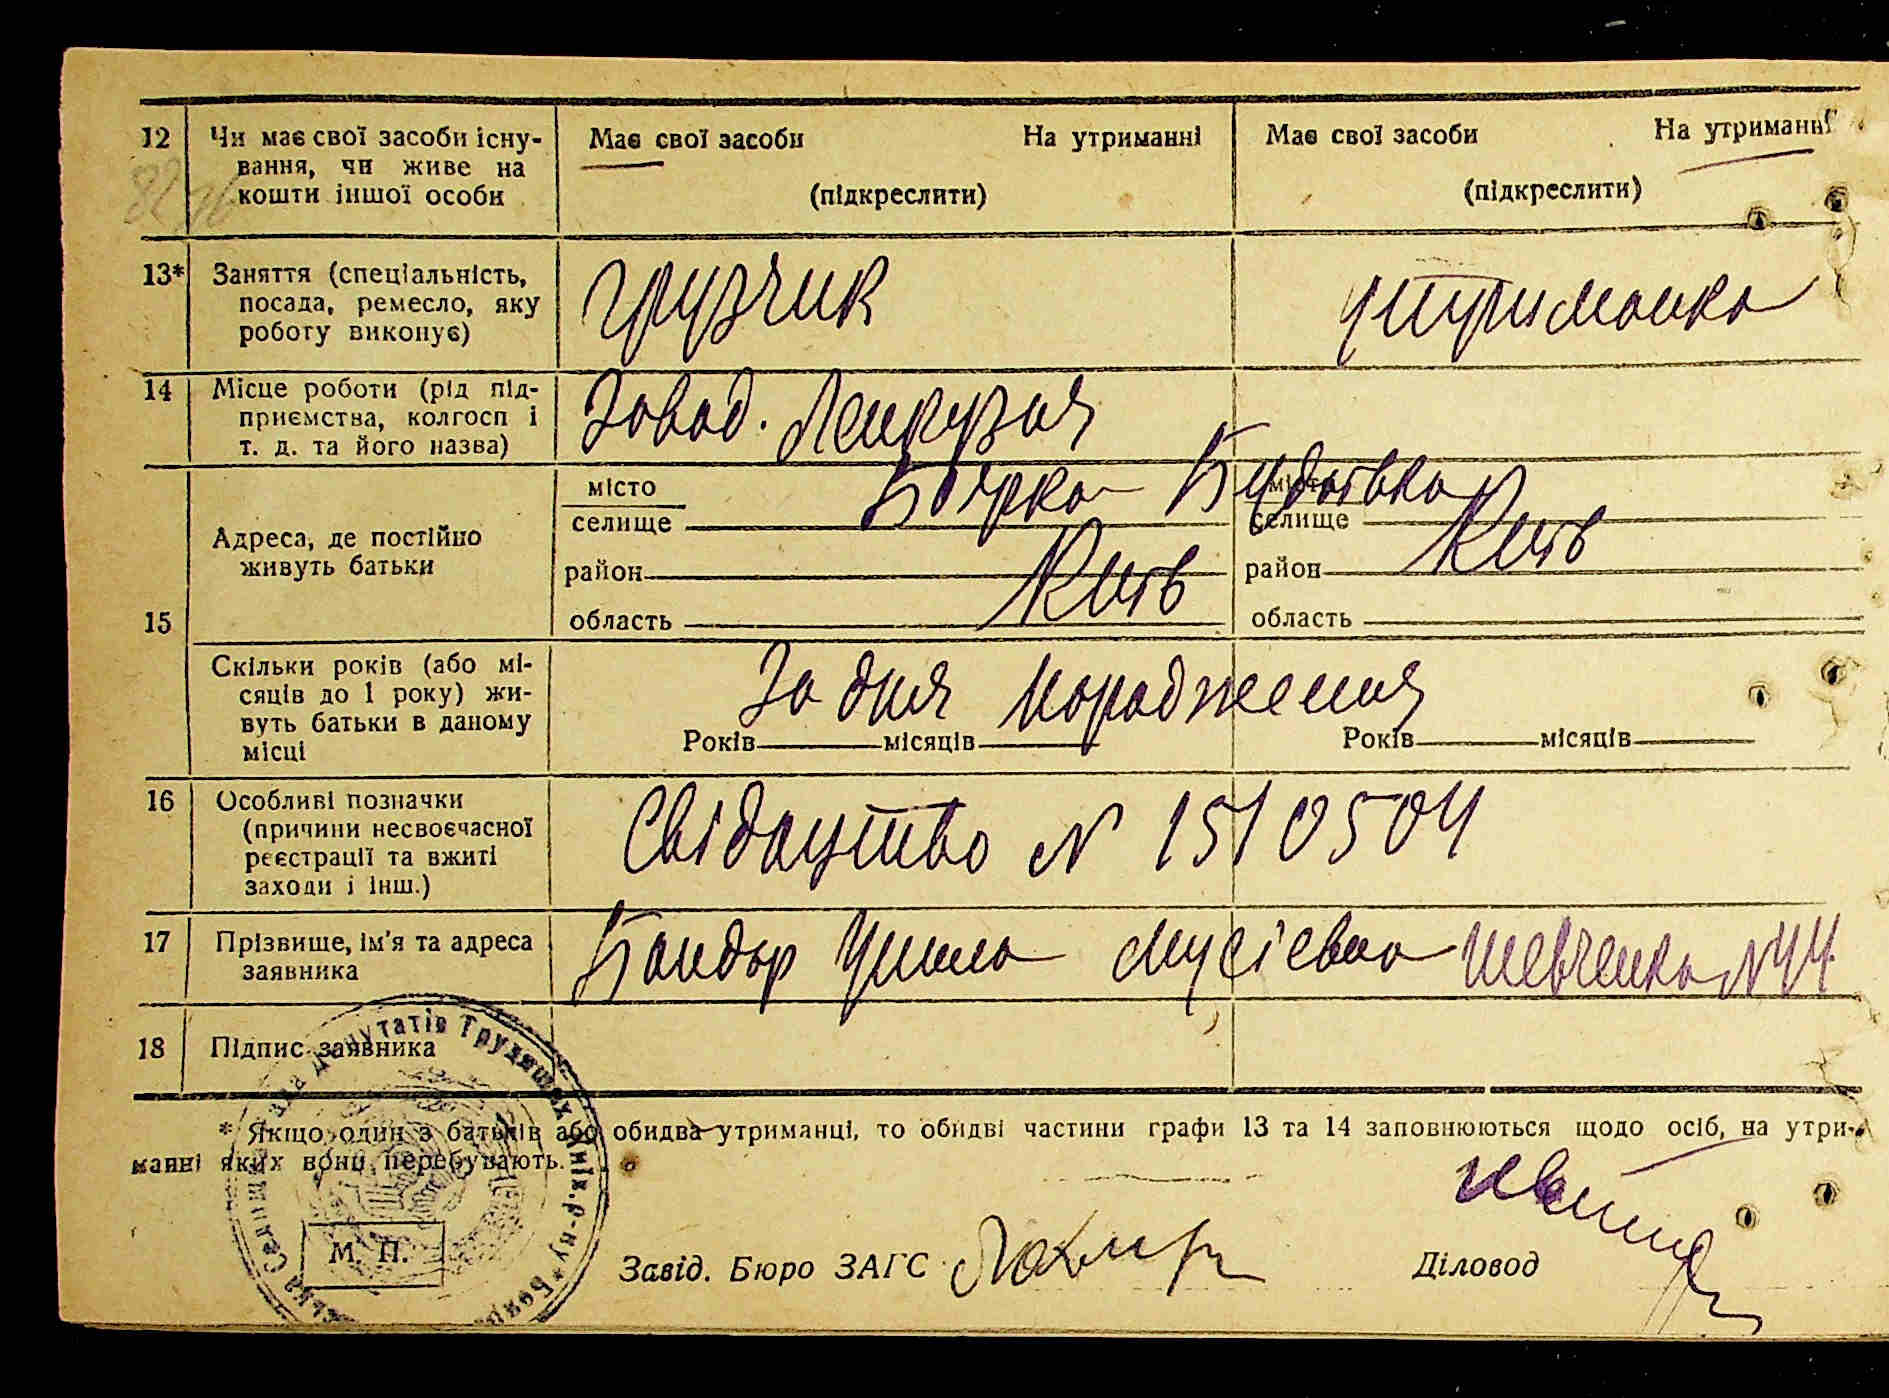 12 Чи має свої засоби існу- Має свої засоби На утриманні Має свої засоби На утриманні
вання, чи живе на
кошти іншої особи (підкреслити) (підкреслити)
13* Заняття (спеціальність,
посада, ремесло, яку грузчик утриманка
роботу виконує)
14 Місце роботи (рід під-
приємства, колгосп і Завод.
т. д. та його назва)
місто Боярка Будаївка місто
селище селище
Адреса, де постійно
живуть батьки район район Київ
15 область Київ область
Скільки років (або мі-
сяців до 1 року) жи- За дня народження
вуть батьки в даному Років місяців Років місяців
місці
16 Особливі позначки
(причини несвоєчасної Свідоцтво N 1510504
реєстрації та вжиті
заходи і інш.)
17 Прізвище, ім'я та адреса Бондар Мусіевна Шевченка N 44
заявника
18 Підпис заявника
* Якщо один з батьків або обидва утриманці, то обидві частини графи 13 та 14 заповнюються щодо осіб, на утри-
манні яких вони перебувають.
М. П.
Завід. Бюро ЗАГС Діловод
депутатів Трудящих Київ. р-ну * Бояр